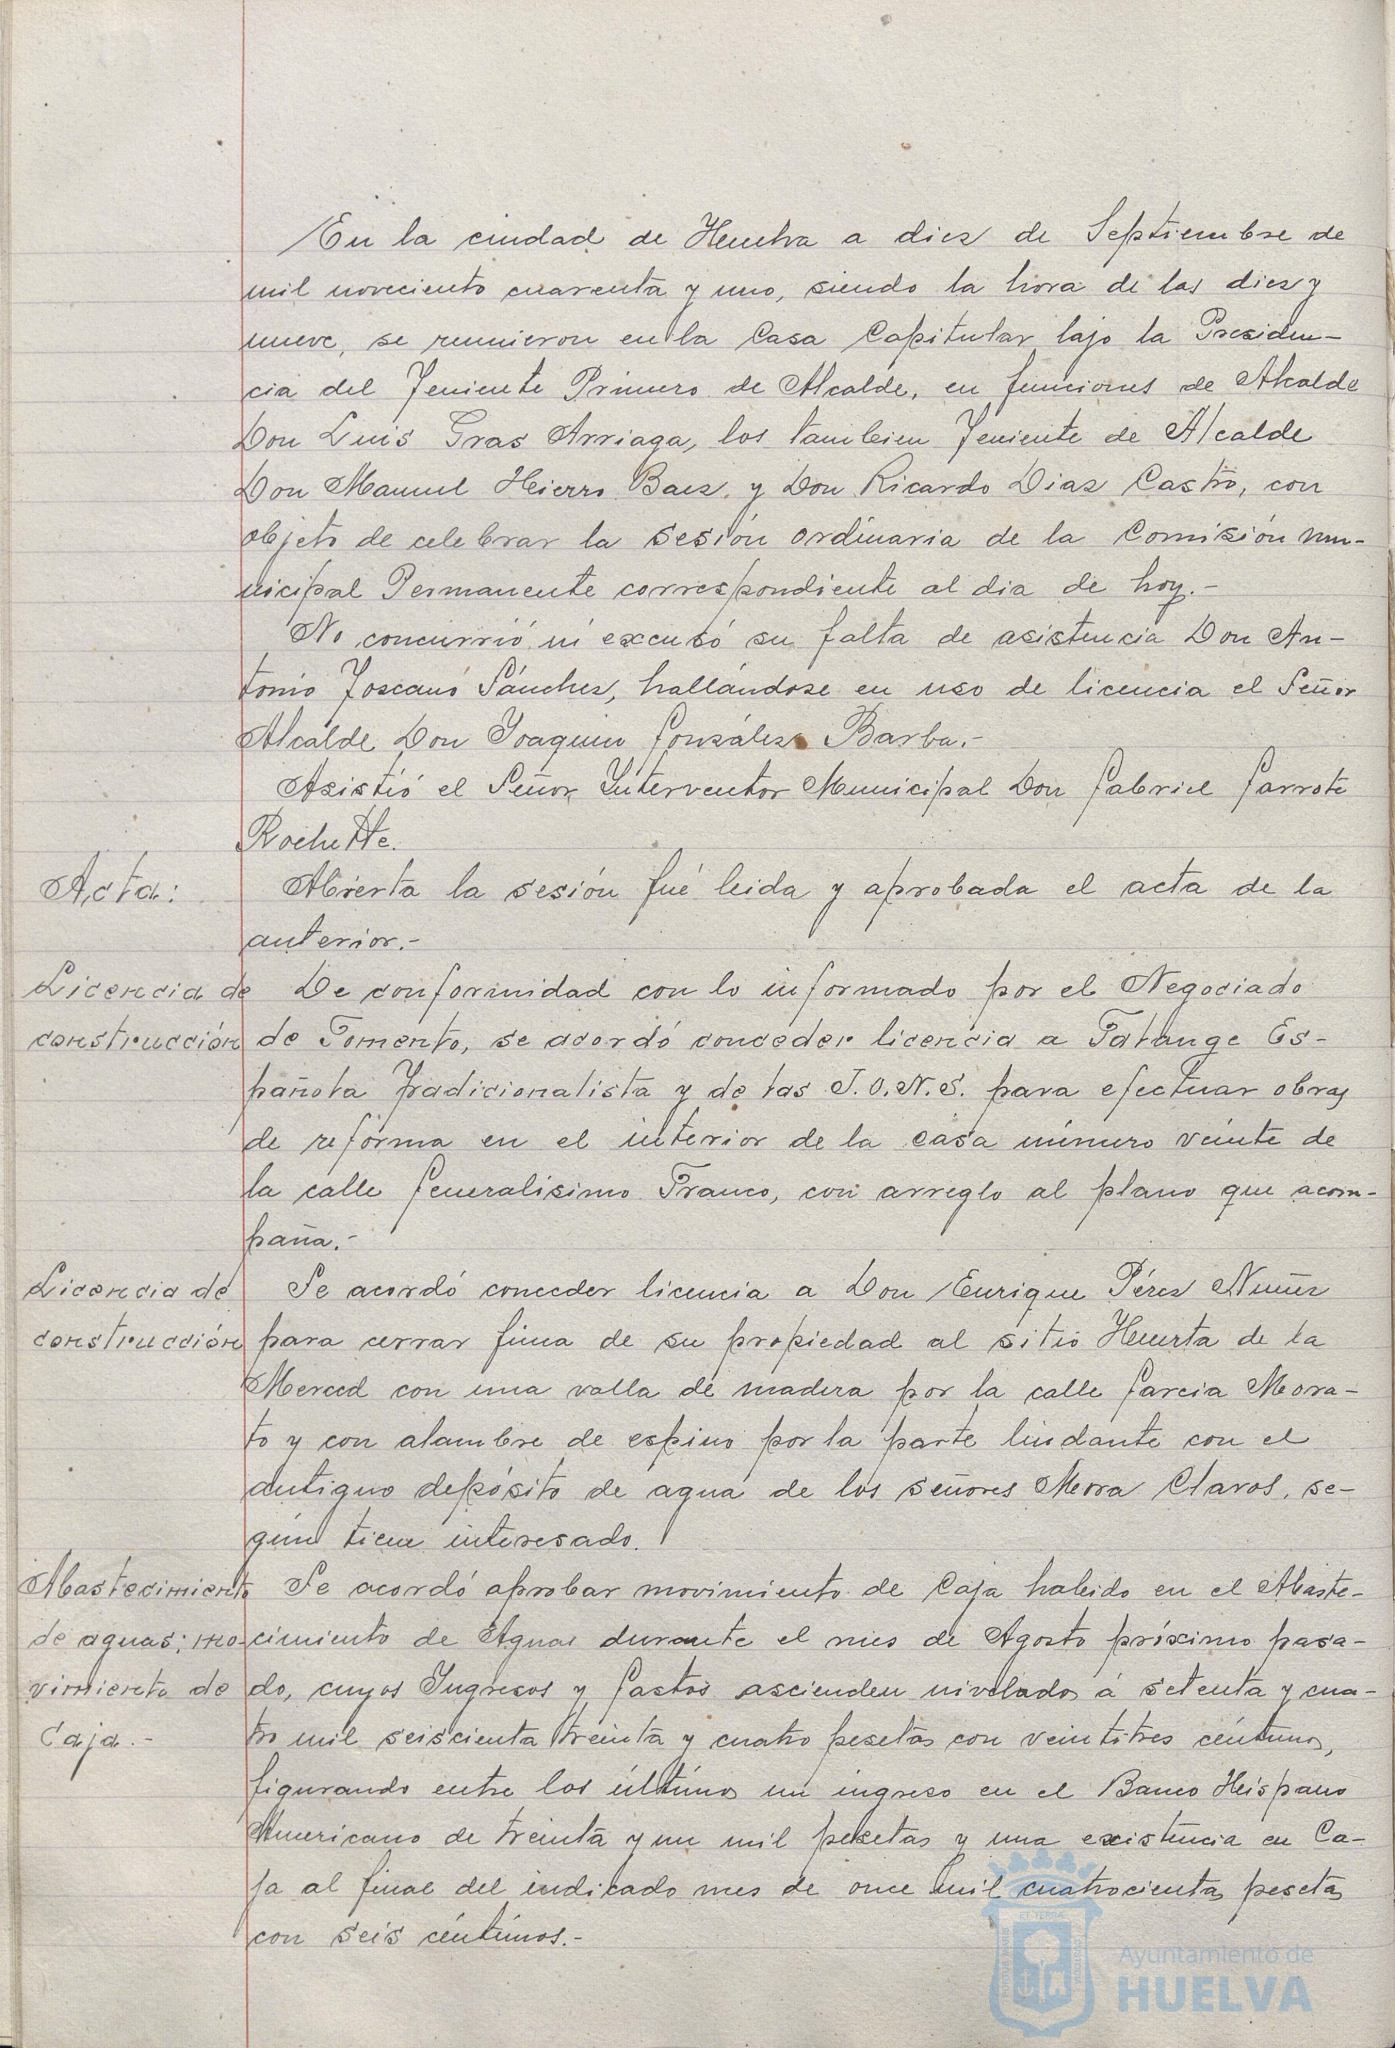 En la ciudad de Huelva a diez de Septiembre de
mil noveciento cuarenta y uno, siendo la hora de las diez y
nueve, se reunieron en la Casa Capitular bajo la Presiden-
cia del Teniente Primero de Alcalde, en funciones de Alcalde
Don Luis Gras Arriaga, los tambien Teniente de Alcalde
Don Manuel Hierro Baez y Don Ricardo Diaz Castro, con
objeto de celebrar la sesión ordinaria de la Comisión mu-
nicipal Permanente correspondiente al dia de hoy.-
No concurrió ni excusó su falta de asistencia Don An-
tonio Toscano Sánchez, hallándose en uso de licencia el Señor
Alcalde Don Joaquin González Barba.-
Asistió el Señor Interventor Municipal Don Gabriel Garrote
Rochette.
Acta:
Abierta la sesión fué leida y aprobada el acta de la
anterior.-
Licencia de
construcción
De conformidad con lo informado por el Negociado
de Fomento, se acordó conceder licencia a Falange Es-
pañola Tradicionalista y de las J.O.N.S. para efectuar obras
de reforma en el interior de la casa número veinte de
la calle Generalisimo Franco, con arreglo al plano que acom-
paña.-
Licencia de
construcción
Se acordó conceder licencia a Don Enrique Pérez Nuñez
para cerrar finca de su propiedad al sitio Huerta de la
Merced con una valla de madera por la calle Garcia Mora-
to y con alambre de espino por la parte lindante con el
antiguo depósito de agua de los señores Mora Claros, se-
gún tiene interesado.
Abastecimiento
de aguas; mo-
vimiento de
Caja.-
Se acordó aprobar movimiento de Caja habido en el Abaste-
cimiento de Aguas durante el mes de Agosto próximo pasa-
do, cuyos Ingresos y Gastos ascienden nivelados á setenta y cua-
tro mil seiscienta treinta y cuatro pesetas con veintitres céntimos,
figurando entre los últimos un ingreso en el Banco Hispano
Americano de treinta y un mil pesetas y una existencia en Ca-
ja al final del indicado mes de once mil cuatrocientas pesetas
con seis céntimos.-
Ayuntamiento de
HUELVA